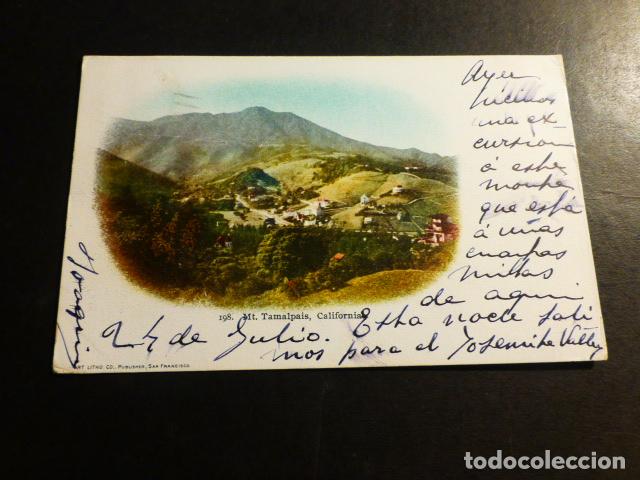 Ayer
hicimos
una ex-
cursion
á este
monte
que está
á unas
cuantas
millas
de aqui
198. Mt. Tamalpais, California.
24 de Julio. Esta noche sali
mos para el Yosemite Valley
Joaquin
ART LITHO. CO., PUBLISHER, SAN FRANCISCO
todocoleccion.net